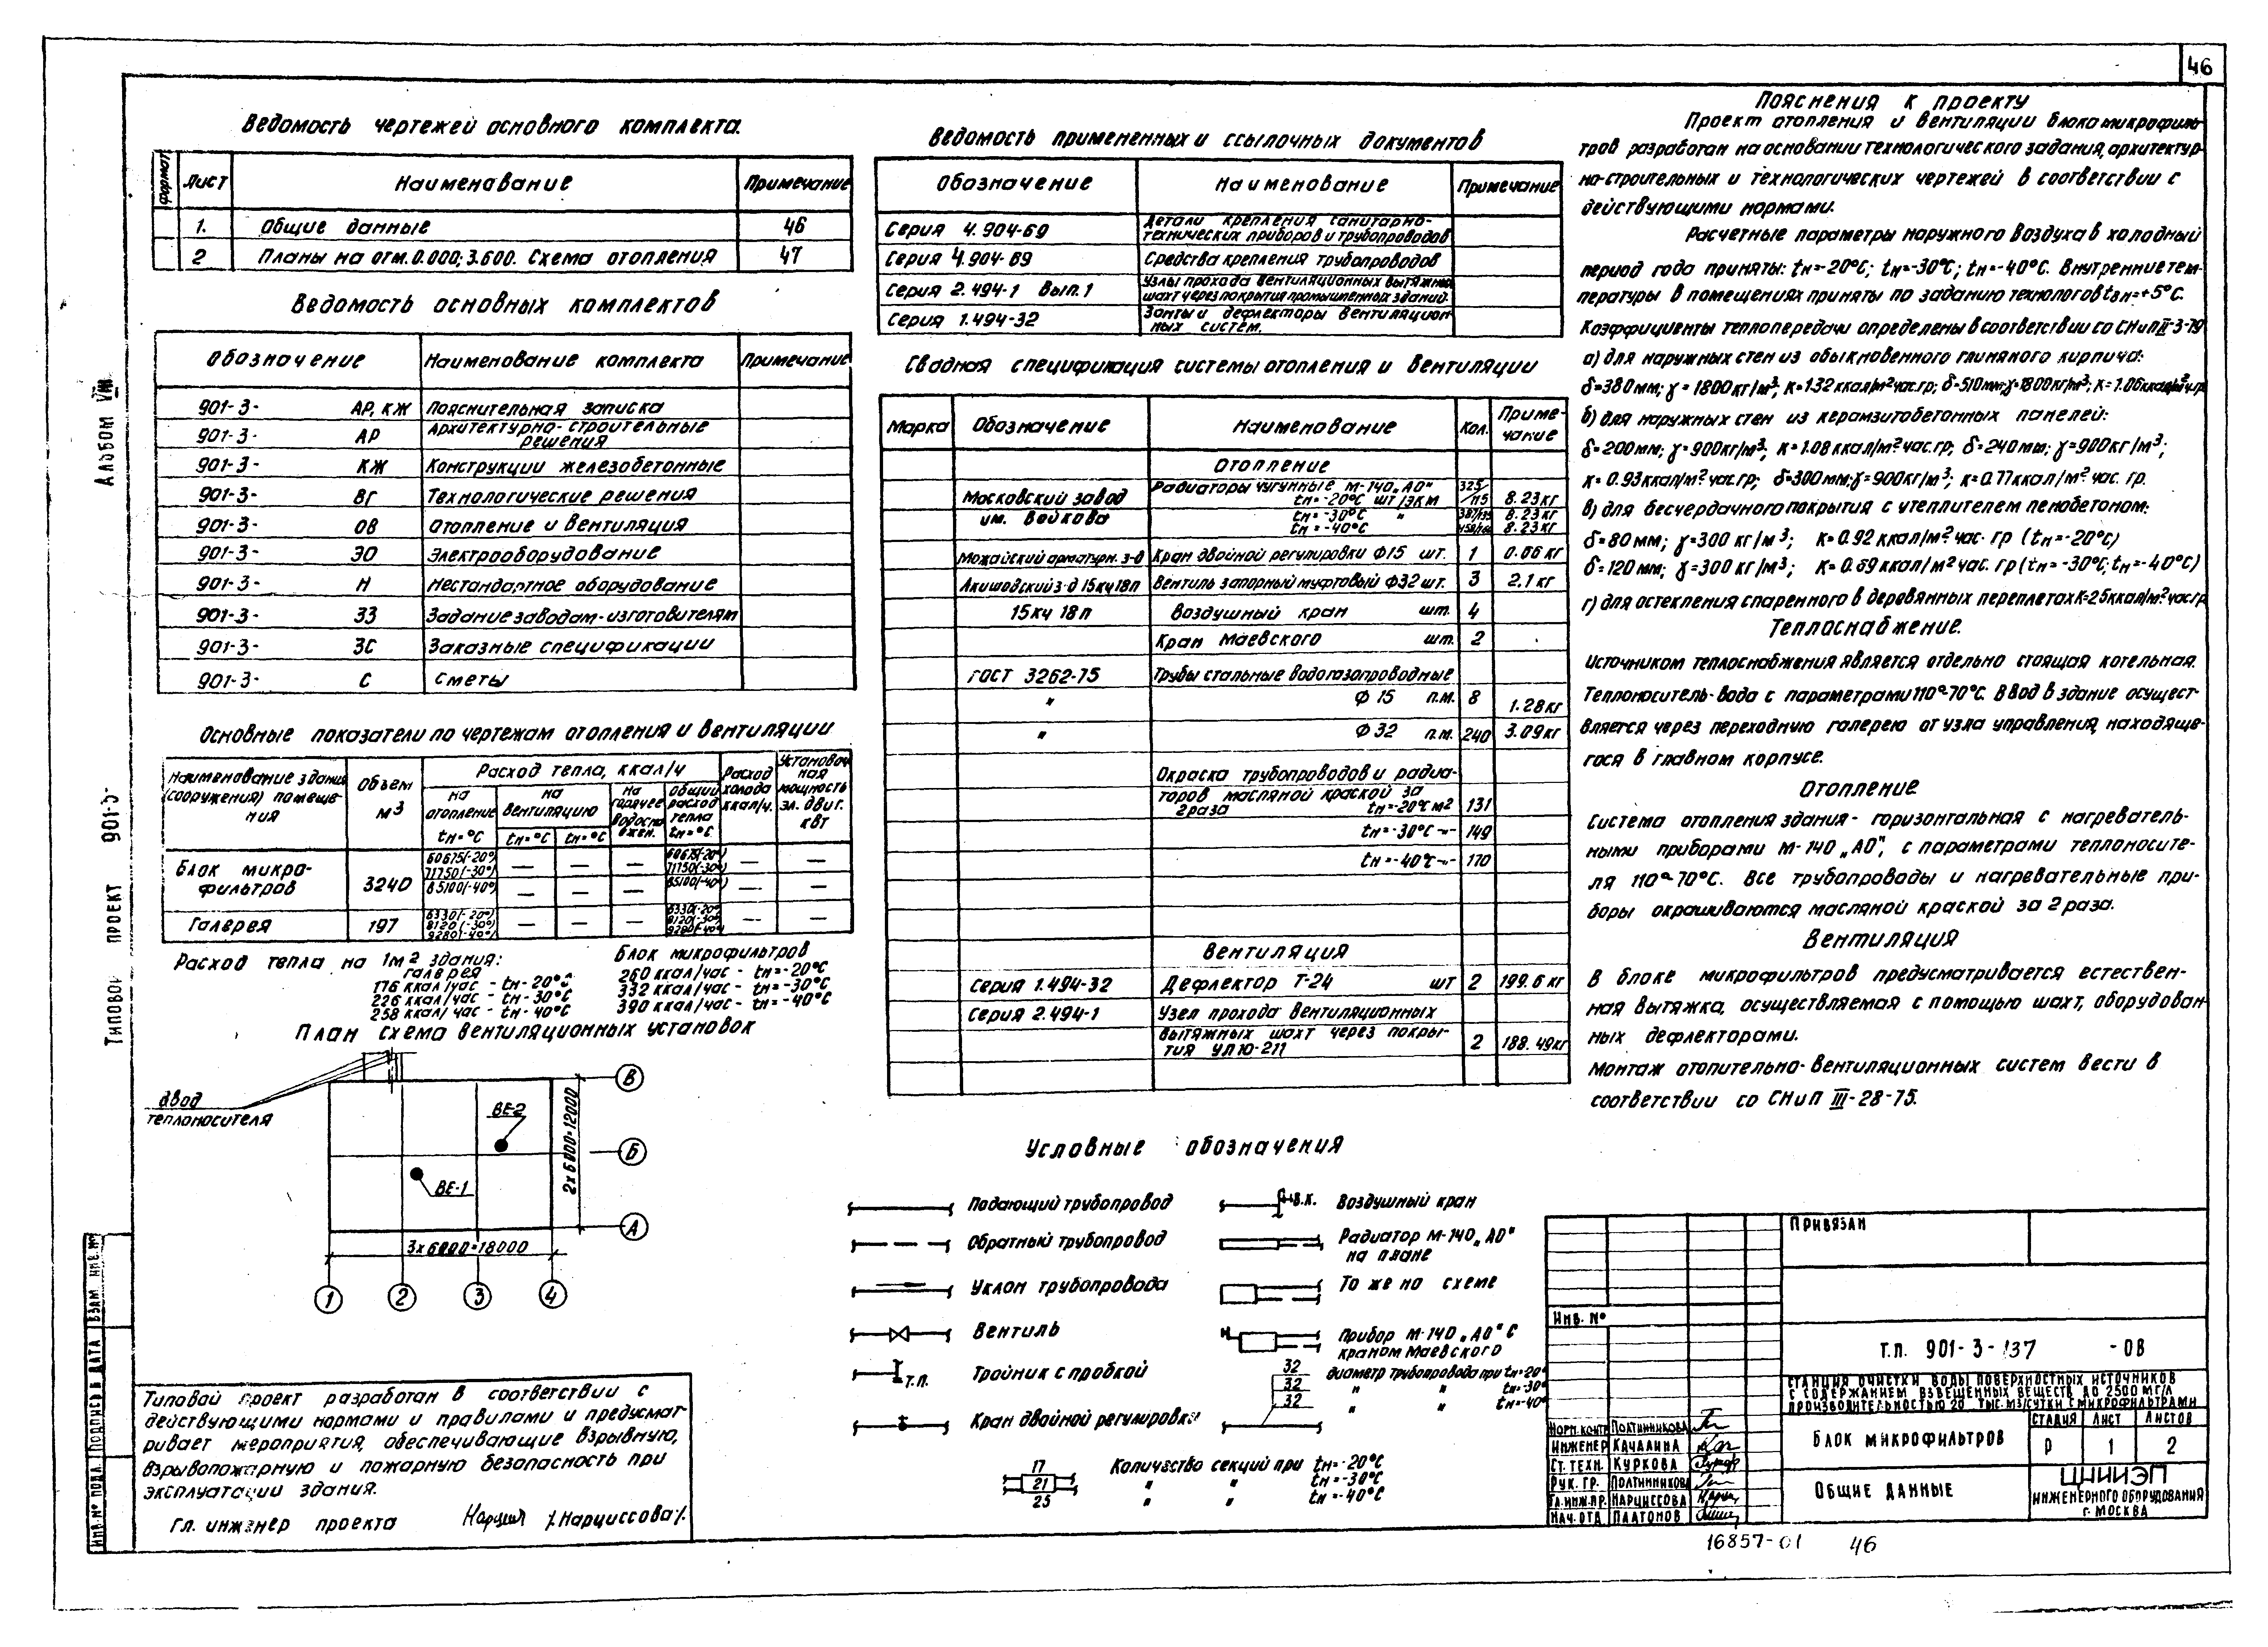 46
Альбом VIII
Типовой проект 901-3-
Ведомость чертежей основного комплекта.
Формат Лист Наименование Примечание
1. Общие данные 46
2 Планы на отм. 0.000; 3.600. Схема отопления 47
Ведомость основных комплектов
Обозначение Наименование комплекта Примечание
901-3- АР, КЖ Пояснительная записка
901-3- АР Архитектурно-строительные
решения
901-3- КЖ Конструкции железобетонные
901-3- ВГ Технологические решения
901-3- ОВ Отопление и вентиляция
901-3- ЭО Электрооборудование
901-3- Н Нестандартное оборудование
901-3- ЗЗ Задание заводам-изготовителям
901-3- ЗС Заказные спецификации
901-3- С Сметы
Основные показатели по чертежам отопления и вентиляции
Наименование здания
(сооружения) помеще-
ния
Объем
м3
Расход тепла, ккал/ч
на
отопление
tн=°С
на
вентиляцию
tн=°С tн=°С
на
горячее
водосна
бжен.
общий
расход
тепла
tн=°С
Расход
холода
ккал/ч.
Установоч
ная
мощность
эл. двиг.
квт
Блок микро-
фильтров
3240
60675(-20°) — — — 60675(-20°) — —
71750(-30°) 71750(-30°)
85100(-40°) — — — 85100(-40°) — —
Галерея 197
6330(-20°) 6330(-20°)
8120(-30°) — — — 8120(-30°) — —
9280(-40°) 9280(-40°)
Расход тепла на 1м2 здания:
галерея
176 ккал/час - tн-20°С
226 ккал/час - tн-30°С
258 ккал/час - tн-40°С
Блок микрофильтров
260 ккал/час - tн=-20°С
332 ккал/час - tн=-30°С
390 ккал/час - tн=-40°С
План схема вентиляционных установок
Ввод
теплоносителя
ВЕ-2
ВЕ-1
2х6000=12000
3х6000=18000
В
Б
А
1 2 3 4
Типовой проект разработан в соответствии с
действующими нормами и правилами и предусмат-
ривает мероприятия, обеспечивающие взрывную,
взрывопожарную и пожарную безопасность при
эксплуатации здания.
Гл. инженер проекта /Нарциссова/.
Ведомость примененных и ссылочных документов
Обозначение Наименование Примечание
Серия 4.904-69 Детали крепления санитарно-
технических приборов и трубопроводов
Серия 4.904-69 Средства крепления трубопроводов
Серия 2.494-1 Вып.1 Узлы прохода вентиляционных вытяжных
шахт через покрытия промышленных зданий.
Серия 1.494-32 Зонты и дефлекторы вентиляцион
ных систем.
Сводная спецификация системы отопления и вентиляции
Марка Обозначение Наименование Кол. Приме-
чание
Отопление
Московский завод
им. Войкова
Радиаторы чугунные М-140„АО"
tн=-20°С шт/экм 325/115 8.23кг
tн=-30°С " 387/135 8.23кг
tн=-40°С 8.23кг
Можайский арматурн. з-д Кран двойной регулировки Ф15 шт. 1 0.66 кг
15кч18п Вентиль запорный муфтовый Ф32 шт. 3 2.1 кг
15кч 18п Воздушный кран шт. 4
Кран Маевского шт. 2
ГОСТ 3262-75 Трубы стальные водогазопроводные
" Ф 15 п.м. 8 1.28кг
" Ф 32 п.м. 240 3.09кг
Окраска трубопроводов и радиа-
торов масляной краской за
2 раза tн=-20°С м2 131
tн=-30°С -"- 149
tн=-40°С -"- 170
Вентиляция
Серия 1.494-32 Дефлектор Т-24 шт 2 199.6 кг
Серия 2.494-1 Узел прохода вентиляционных
вытяжных шахт через покры-
тия УП10-211 2 188.49кг
Условные обозначения
Подающий трубопровод
Обратный трубопровод
Уклон трубопровода
Вентиль
т.п. Тройник с пробкой
Кран двойной регулировки
в.к. Воздушный кран
Радиатор М-140„АО"
на плане
То же на схеме
Прибор М-140„АО" с
краном Маевского
32 диаметр трубопровода при tн=-20°
32 " " tн=-30°
32 " " tн=-40°
17 Количество секций при tн=-20°С
21 " " tн=-30°С
25 " " tн=-40°С
Пояснения к проекту
Проект отопления и вентиляции блока микрофиль-
тров разработан на основании технологического задания, архитектур-
но-строительных и технологических чертежей в соответствии с
действующими нормами.
Расчетные параметры наружного воздуха в холодный
период года приняты: tн=-20°С; tн=-30°С; tн=-40°С. Внутренние тем-
пературы в помещениях приняты по заданию технологов tвн=+5°С.
Коэффициенты теплопередачи определены в соответствии со СНиП II-3-79
а) для наружных стен из обыкновенного глиняного кирпича:
δ=380мм; γ=1800кг/м³; к=1.32 ккал/м²час.гр; δ=510мм; γ=1800кг/м³; к=1.06ккал/м²ч.гр
б) для наружных стен из керамзитобетонных панелей:
δ=200мм; γ=900кг/м³; к=1.08 ккал/м² час.гр; δ=240мм; γ=900кг/м³;
к=0.93ккал/м²час.гр; δ=300мм; γ=900кг/м³; к=0.77ккал/м² час. гр.
в) для бесчердачного покрытия с утеплителем пенобетоном:
δ=80мм; γ=300 кг/м³; к=0.92 ккал/м² час. гр (tн=-20°С)
δ=120мм; γ=300 кг/м³; к=0.69 ккал/м² час. гр (tн=-30°С; tн=-40°С)
г) для остекления спаренного в деревянных переплетах к-2.5ккал/м²час.гр
Теплоснабжение.
Источником теплоснабжения является отдельно стоящая котельная.
Теплоноситель-вода с параметрами 110°-70°С. Ввод в здание осущест-
вляется через переходную галерею от узла управления, находяще-
гося в главном корпусе.
Отопление
Система отопления здания - горизонтальная с нагреватель-
ными приборами М-140„АО", с параметрами теплоносите-
ля 110°-70°С. Все трубопроводы и нагревательные при-
боры окрашиваются масляной краской за 2 раза.
Вентиляция
В блоке микрофильтров предусматривается естествен-
ная вытяжка, осуществляемая с помощью шахт, оборудован-
ных дефлекторами.
Монтаж отопительно-вентиляционных систем вести в
соответствии со СНиП III-28-75.
Привязан
Инв. №
Т.П. 901-3-137 -ОВ
Станция очистки воды поверхностных источников
с содержанием взвешенных веществ до 2500 мг/л
производительностью 20 тыс. м3/сутки с микрофильтрами
Блок микрофильтров
Стадия Лист Листов
Р 1 2
Общие данные
ЦНИИЭП
инженерного оборудования
г. Москва
Норм. контр Полтинникова
Инженер Качалина
Ст. техн. Куркова
Рук. гр. Полтинникова
Гл. инж. пр. Нарциссова
Нач. отд Платонов
Инв. № подл. Подпись и дата Взам. инв. №
16857-01 46